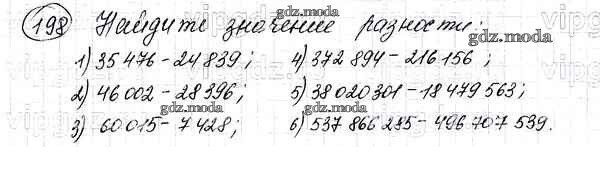 198 Найдите значение разности:
1) 35 476 - 24 839; 4) 372 894 - 216 156;
2) 46 002 - 28 396; 5) 38 020 301 - 18 479 563;
3) 60 015 - 7 428; 6) 537 866 235 - 496 707 539.
gdz.moda
gdz.moda
gdz.moda
gdz.moda
gdz.moda
gdz.moda